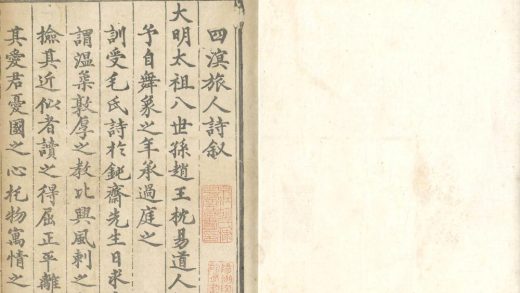 四溟旅人詩叙
大明太祖八世孫趙王枕易道人
予自舞象之年承過庭之
訓受毛氏詩於鈍齋先生日求
謂温柔敦厚之教比興風刺之
撿其近似者讀之得屈正平離
其愛君憂國之心托物寓情之